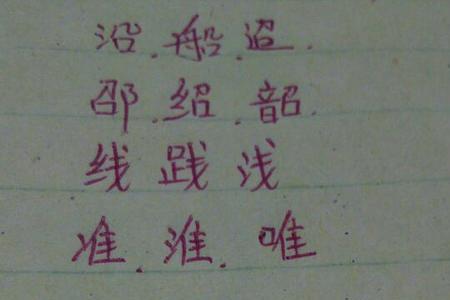 沿.船.
邵.绍.韶.
线 践 浅
准.淮.唯